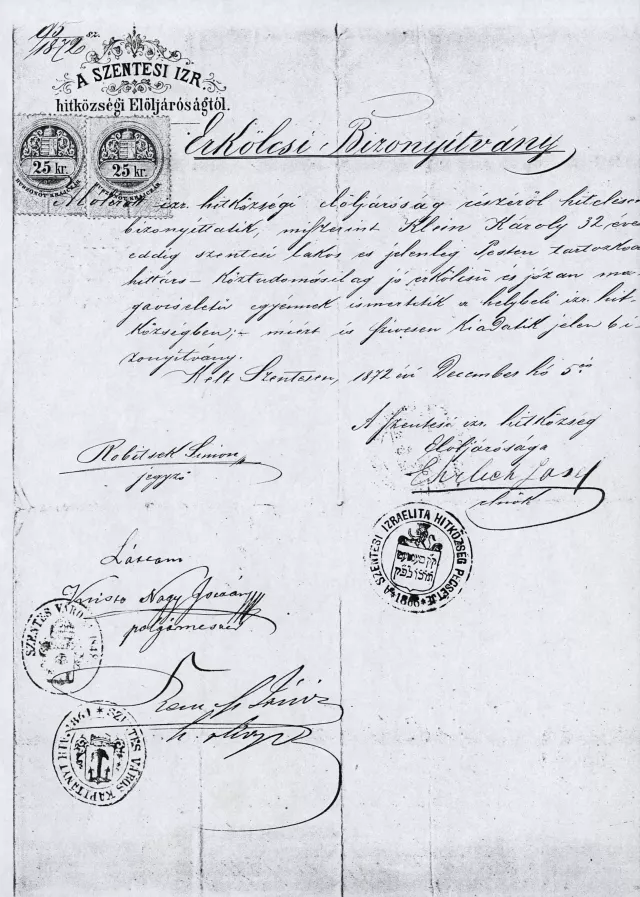 1872 sz.
A SZENTESI IZR.
hitközségi Elöljáróságtól.
25 kr.
25 kr.
Erkölcsi Bizonyítvány
izr. hitközségi elöljáróság részéről hitelesen
bizonyíttatik, miszerint Klein Károly 32 éves
eddig szentesi lakos és jelenleg Pesten tartozkodó
hittárs – köztudomásilag jó erkölcsü és józan ma-
gaviseletü egyénnek ismertetik a helybeli izr. hit-
községben; – miért is szivesen kiadatik jelen bi-
zonyítvány.
Kelt Szentesen, 1872 évi December hó 5én
A szentesi izr. hitközség
Elöljárósága
Robitsek Simon
jegyző
Ehrlich
elnök
A SZENTESI IZRAELITA HITKÖZSÉG PECSÉTJE
Láttam
Nagy
polgármester
SZENTES VÁRO
SZENTES VÁROS KAPITÁNYI HIV. 1861